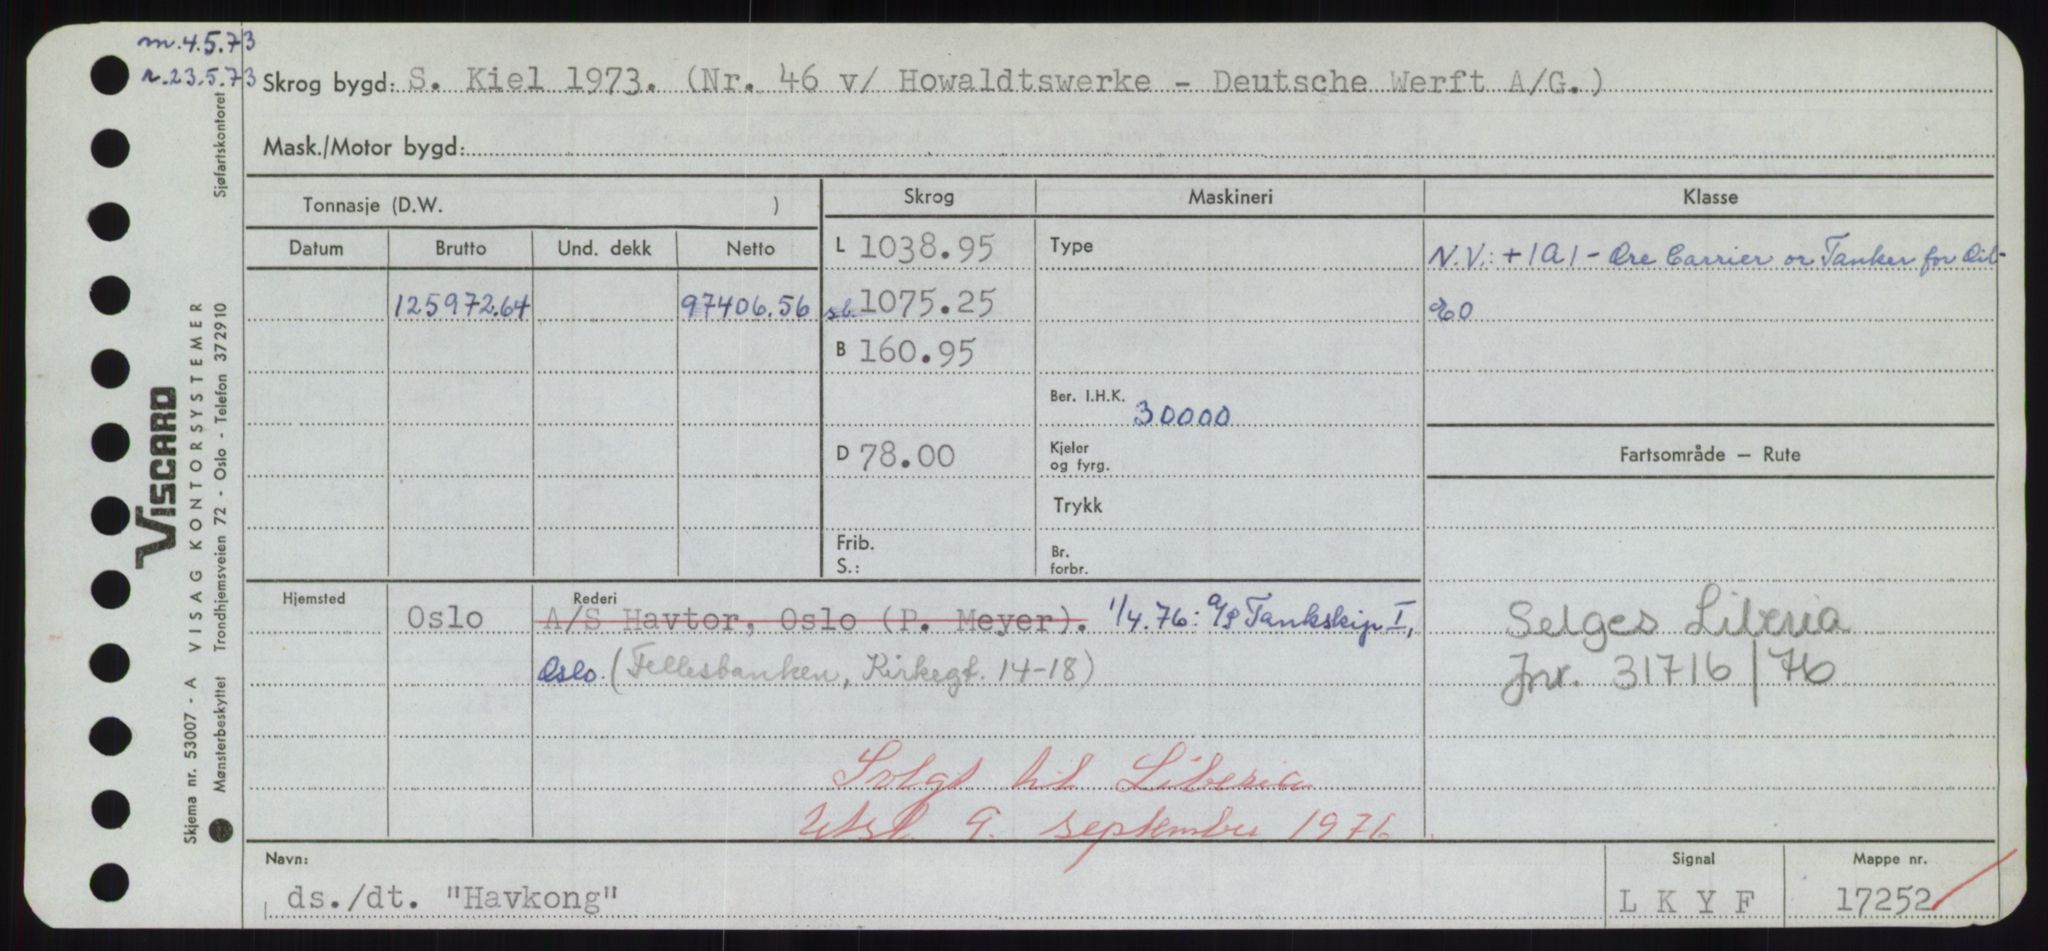 m. 4.5.73
r. 23.5.73
Skrog bygd: S. Kiel 1973. (Nr. 46 v/ Howaldtswerke - Deutsche Werft A/G.)
Mask./Motor bygd:
Tonnasje (D.W. )
Skrog
Maskineri
Klasse
Datum Brutto Und. dekk Netto
L 1038.95
Type
N.V.: +1A1 - Ore Carrier or Tanker for Oil-
125972.64 97406.56
sb. 1075.25
EO
B 160.95
Ber. I.H.K. 30000
D 78.00
Kjeler
og fyrg.
Fartsområde — Rute
Trykk
Frib.
S.:
Br.
forbr.
Hjemsted Oslo
Rederi
A/S Havtor, Oslo (P. Meyer). 1/4.76: A/S Tankskip I,
Oslo. (Fellesbanken, Kirkegt. 14-18)
Selges Liberia
Jnr. 31716/76
Solgt til Liberia
Utsl. 9. september 1976.
Navn:
ds./dt. "Havkong"
Signal
L K Y F
Mappe nr.
17252
VISCARD
Skjema nr. 53007 - A VISAG KONTORSYSTEMER
Mønsterbeskyttet Trondhjemsveien 72 - Oslo - Telefon 372910 Sjøfartskontoret